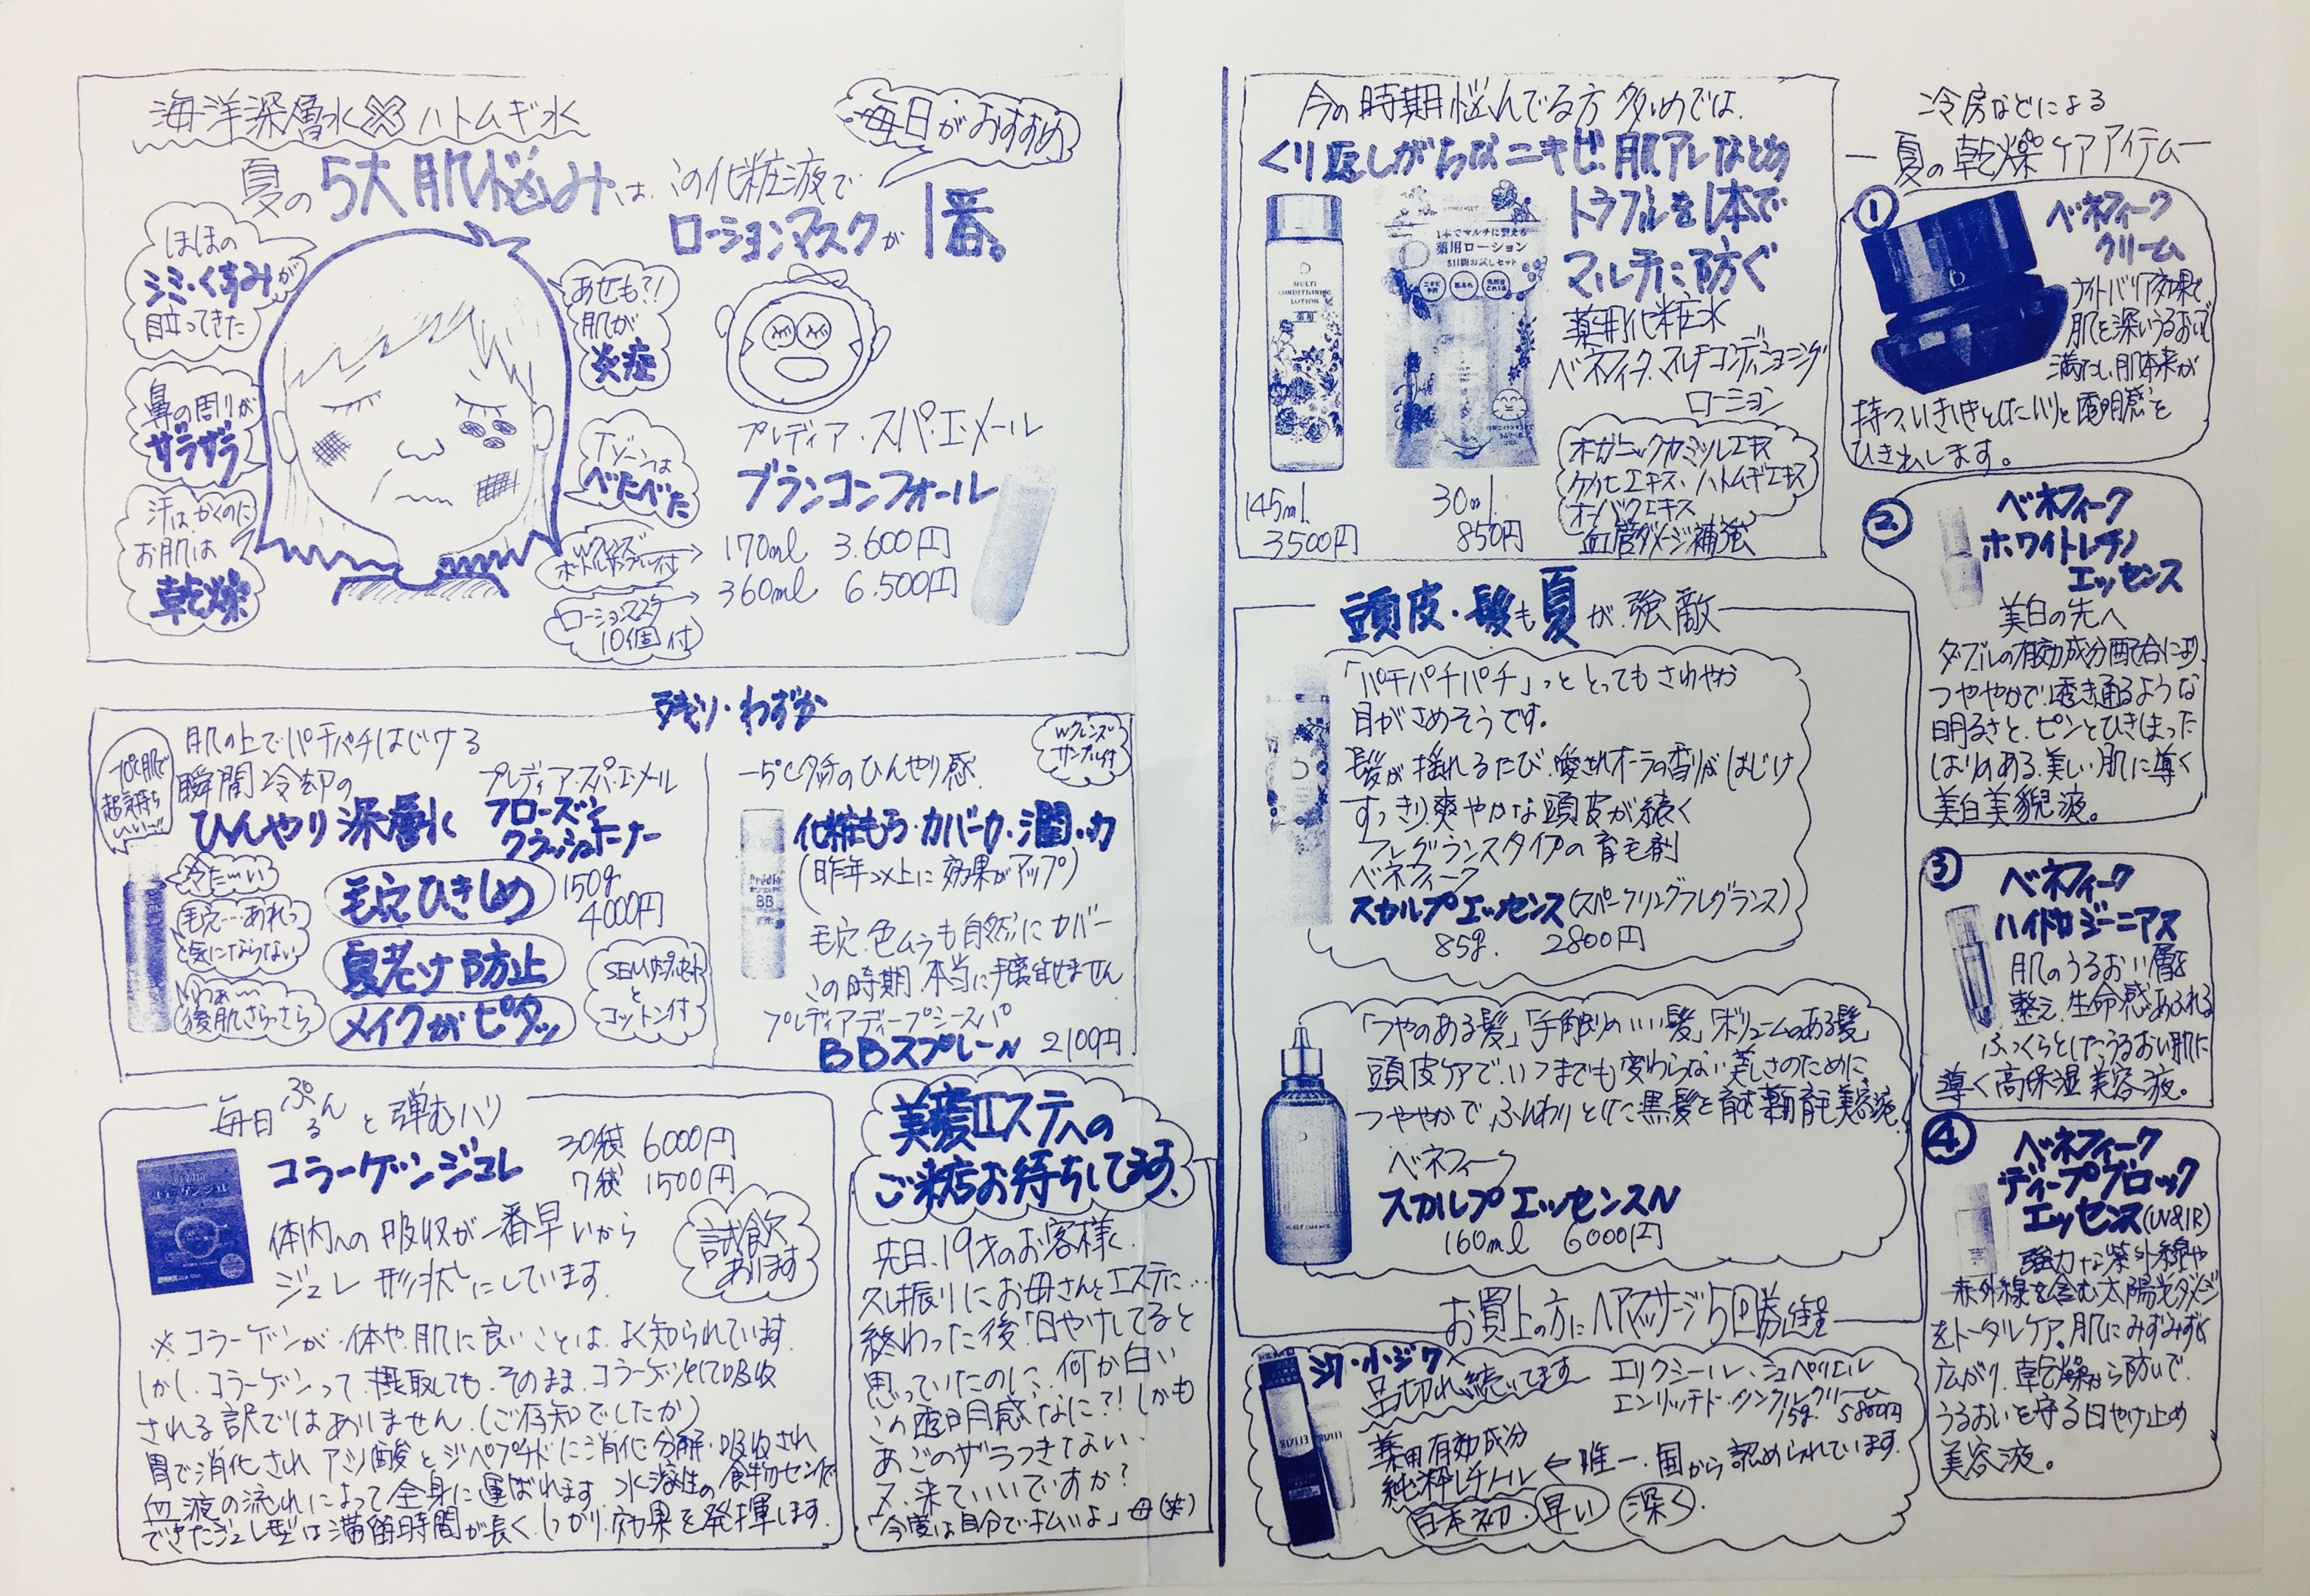 海洋深層水×ハトムギ水
毎日がおすすめ
夏の5大肌悩みは、この化粧液で
ローションマスクが1番。
ほほの
シミ・くすみが
目立ってきた
鼻の周りが
ザラザラ
汗はかくのに
お肌は
乾燥
あせも?!
肌が
炎症
Tゾーンは
べたべた
プレディア・スパ・エ・メール
ブランコンフォール
170ml 3.600円
360ml 6.500円
ローションマスク
10個付
残り・わずか
肌の上でパチパチはじける
瞬間冷却の
ひんやり深層水
プレディア・スパ・エ・メール
フローズン
クラッシュトナー
冷た〜い
毛穴…あれっ
気にならない
後肌さらさら
毛穴ひきしめ
夏老け防止
メイクがピタッ
150g
4000円
コットン付
Wクレンズ
サンプル付
-5℃タッチのひんやり感
化粧もち・カバー力・潤・力
(昨年以上に効果がアップ)
毛穴.色ムラも自然にカバー
この時期.本当に手離せません
プレディアディープシースパ
BBスプレーN 2100円
毎日ぷるんと弾むハリ
コラーゲンジュレ
30袋 6000円
7袋 1500円
体内への吸収が一番早いから
ジュレ形状にしています.
試飲
あります
※コラーゲンが.体や.肌に良いことは.よく知られています.
しかし.コラーゲンって.摂取しても.そのまま.コラーゲンとして吸収
される訳ではありません.(ご存知でしたか)
胃で消化され アミノ酸とジペプチドに消化.分解.吸収され
血液の流れによって全身に運ばれます 水溶性の食物センイで
できたジュレ型は滞留時間が長く.しっかり.効果を発揮します.
美顔エステへの
ご来店お待ちしてます、
先日、19才のお客様、
久し振りにお母さんとエステに…
終わった後「日やけしてると
思っていたのに、何か白い
この透明感なに?!しかも
あごのザラつきてない.
又、来ていいですか?
「今度は自分で払いよ」母(笑)
今の時期悩んでる方多いのでは.
くり返しがちなニキビ.肌アレなどの
トラブルを1本で
マルチに防ぐ
薬用化粧水
ベネフィーク.マルチコンディショニング
ローション
MULTI
CONDITIONING
LOTION
1本でマルチに整える
薬用ローション
5日間お試しセット
オーガニックカミツレエキス
ケイヒエキス、ハトムギエキス
オーバクエキス
血管ダメージ補強
145ml
3500円
30ml
850円
頭皮・髪も夏が強敵
「パチパチパチ」っととってもさわやか
目がさめそうです。
髪が揺れるたび.愛されオーラの香りがはじけ
すっきり爽やかな頭皮が続く
フレグランスタイプの育毛剤
ベネフィーク
スカルプエッセンス(スパークリングフレグランス)
85g. 2800円
「つやのある髪」「手触りのいい髪」「ボリュームのある髪」
頭皮ケアで.いつまでも変わらない美しさのために
つややかでふんわりとした黒髪を育む薬用育毛美容液.
ベネフィーク
スカルプエッセンスN
160ml 6000円
お買上の方にヘアマッサージ5回券進呈
シワ・小ジワへ
品切れ続いてます
エリクシール.シュペリエル
エンリッチド.リンクルクリーム
15g. 5800円
薬用有効成分
純粋レチノール ← 唯一.国から認められています.
日本初. 早い 深く.
冷房などによる
夏の乾燥ケアアイテム
① ベネフィーク
クリーム
ナイトバリア効果で
肌を深いうるおいで
満たし.肌本来が
持つ、いきいきとしたハリと透明感を
ひき出します。
② ベネフィーク
ホワイトレチノ
エッセンス
美白の先へ
ダブルの有効成分配合により.
つややかで透き通るような
明るさと.ピンとひきしまった
はりのある.美しい肌に導く
美白美容液。
③ ベネフィーク
ハイドロジーニアス
肌のうるおい層を
整え.生命感あふれる
ふっくらとしたうるおい肌に
導く高保湿美容液。
④ ベネフィーク
ディープブロック
エッセンス(UV&IR)
強力な紫外線や
赤外線を含む太陽光ダメージ
をトータルケア。肌にみずみずしく
広がり.乾燥から防いで.
うるおいを守る日やけ止め
美容液。